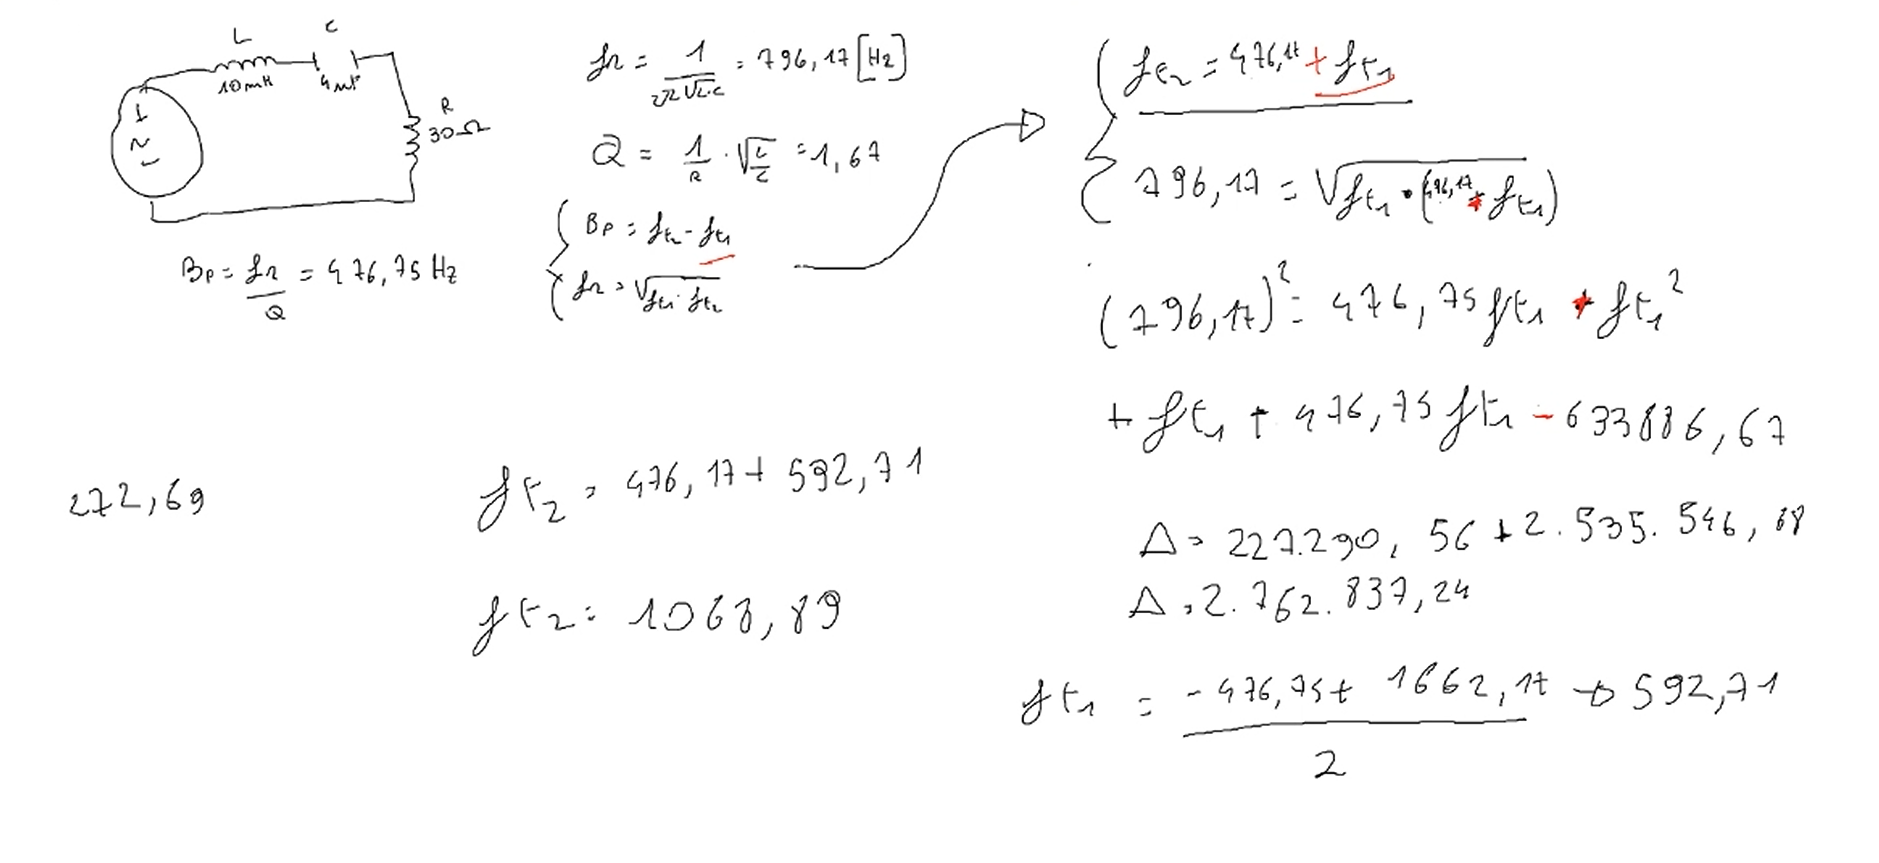 L
C
10mH
4µF
R
30Ω
Bp = fr/Q = 476,75 Hz
fr = 1/(2π√L·C) = 796,17 [Hz]
Q = 1/R · √L/C = 1,67
Bp = ft2 - ft1
fr = √ft1 · ft2
ft2 = 476,17 + ft1
796,17 = √ft1 · (496,17 + ft1)
(796,17)² = 476,75 ft1 + ft1²
+ ft1 + 476,75 ft1 - 633886,67
Δ = 227.290,56 + 2.535.546,68
Δ = 2.762.837,24
ft1 = (-476,75 + 1662,17)/2 → 592,71
272,69
ft2 = 476,17 + 592,71
ft2 = 1068,89